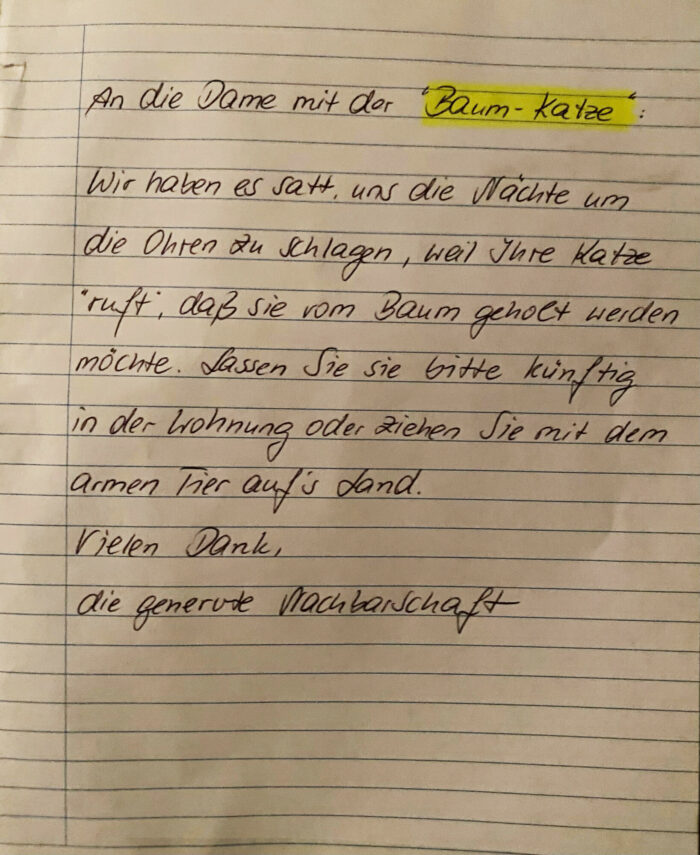 An die Dame mit der "Baum-Katze":
Wir haben es satt, uns die Nächte um
die Ohren zu schlagen, weil Ihre Katze
"ruft", daß sie vom Baum geholt werden
möchte. Lassen Sie sie bitte künftig
in der Wohnung oder ziehen Sie mit dem
armen Tier auf's Land.
Vielen Dank,
die genervte Nachbarschaft